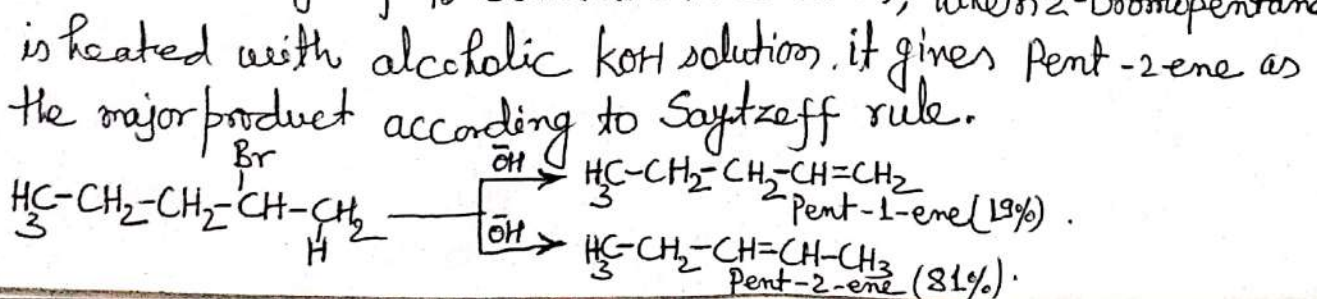 is heated with alcoholic KOH solution, it gives Pent-2-ene as
the major product according to Saytzeff rule.
Br
H₃C-CH₂-CH₂-CH-CH₂
H
ŌH
H₃C-CH₂-CH₂-CH=CH₂
Pent-1-ene (19%).
ŌH
H₃C-CH₂-CH=CH-CH₃
Pent-2-ene (81%).